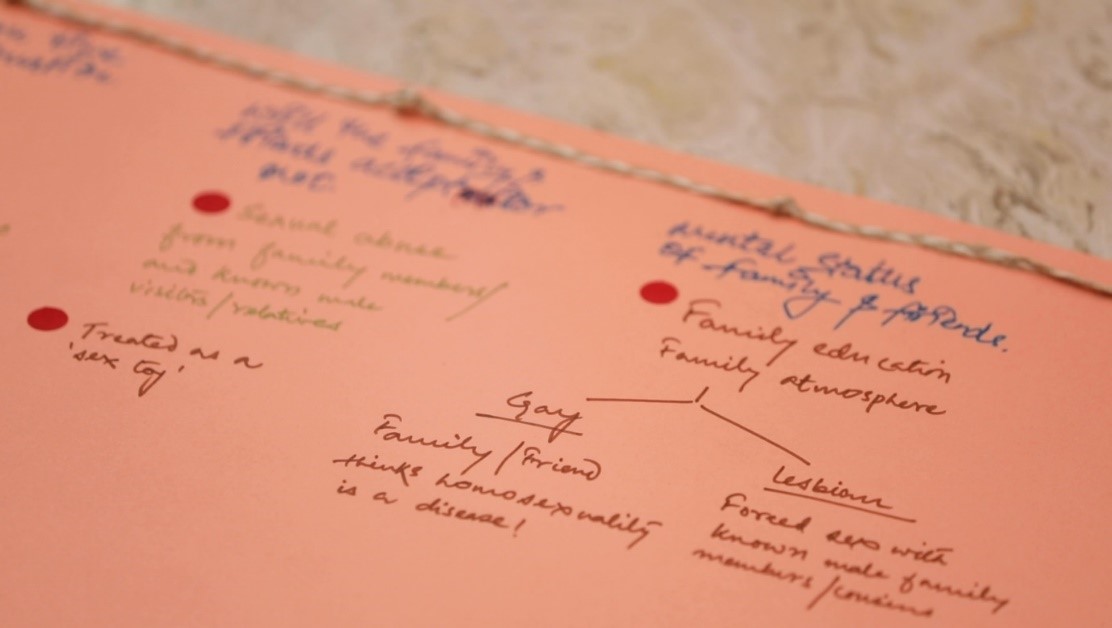 with the family &
friends accept or
not.
Sexual abuse
from family members/
and known male
visitors/relatives
Treated as a
'sex toy'
mental status
of family & friends.
Family education
Family atmosphere
Gay
Family/Friend
thinks homosexuality
is a disease!
Lesbian
Forced sex with
known male family
members/cousins